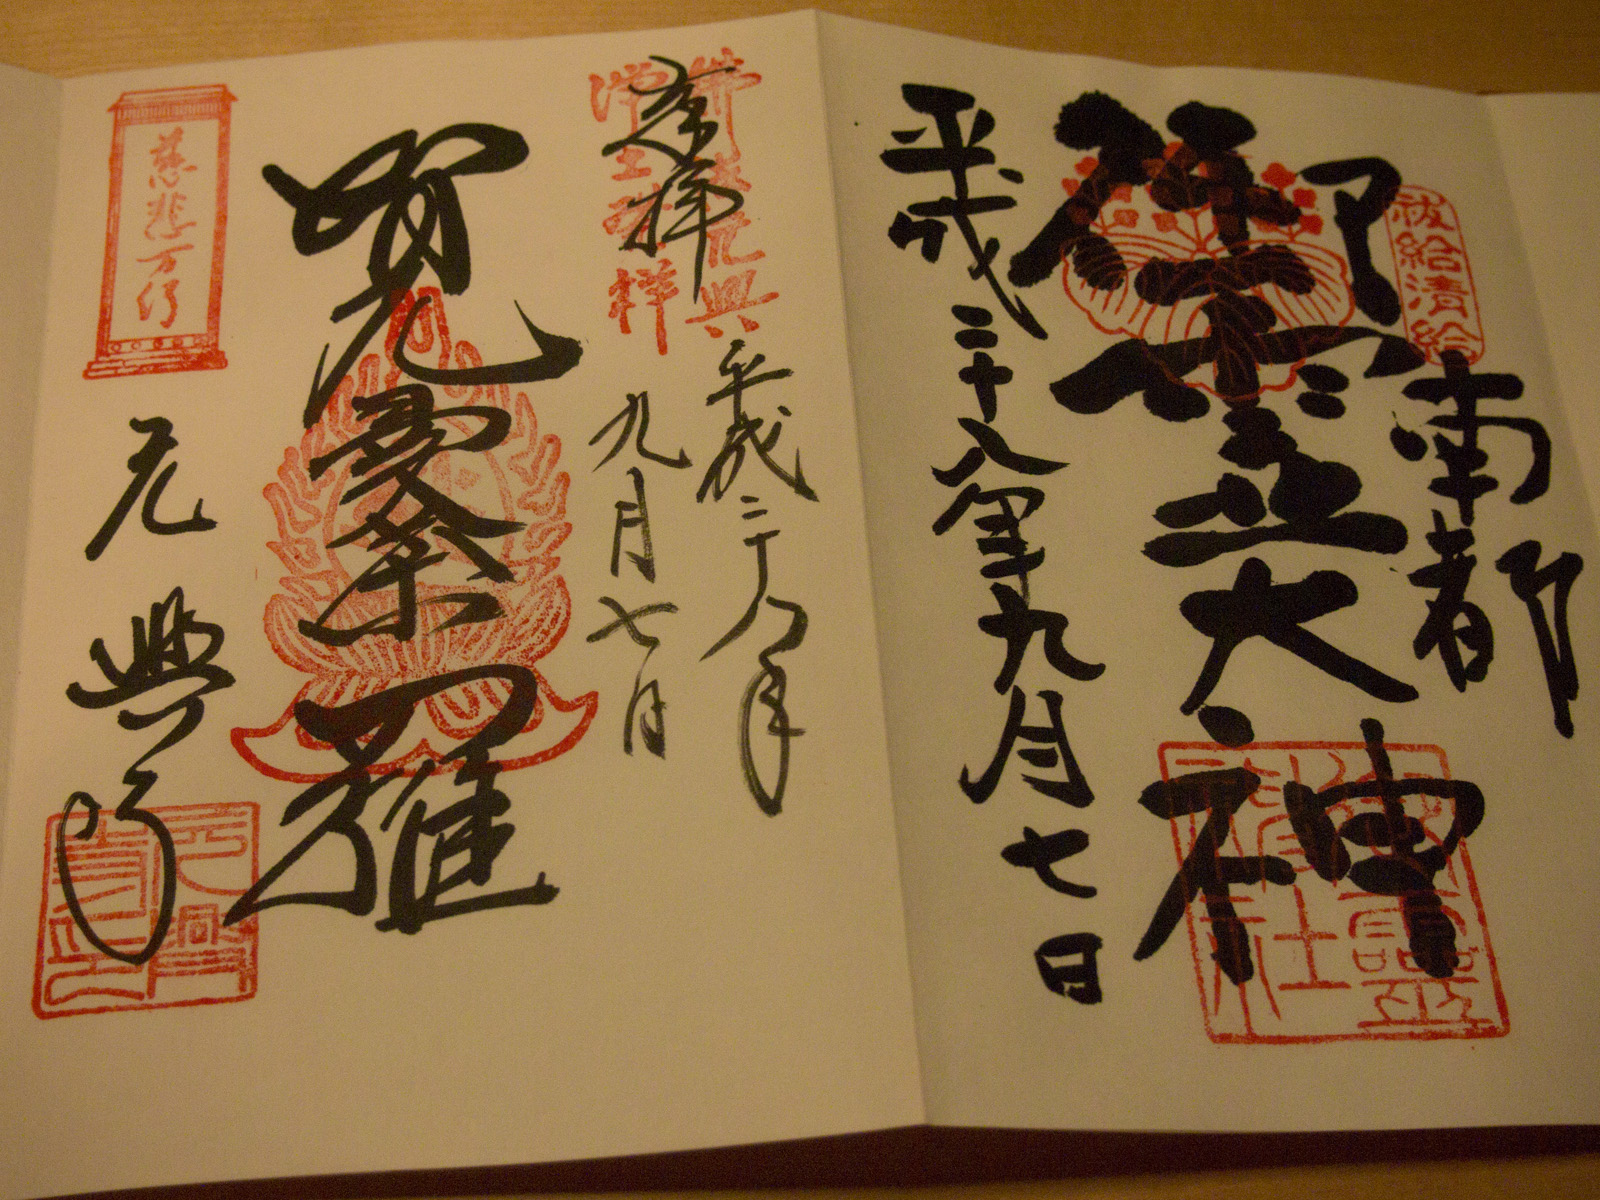 祓給清給
南都
御霊大神
平成二十八年九月七日
御霊神社
佛法元興
浄土発祥
奉拝
平成二十八年
九月七日
智光曼荼羅
慈悲万行
元興寺